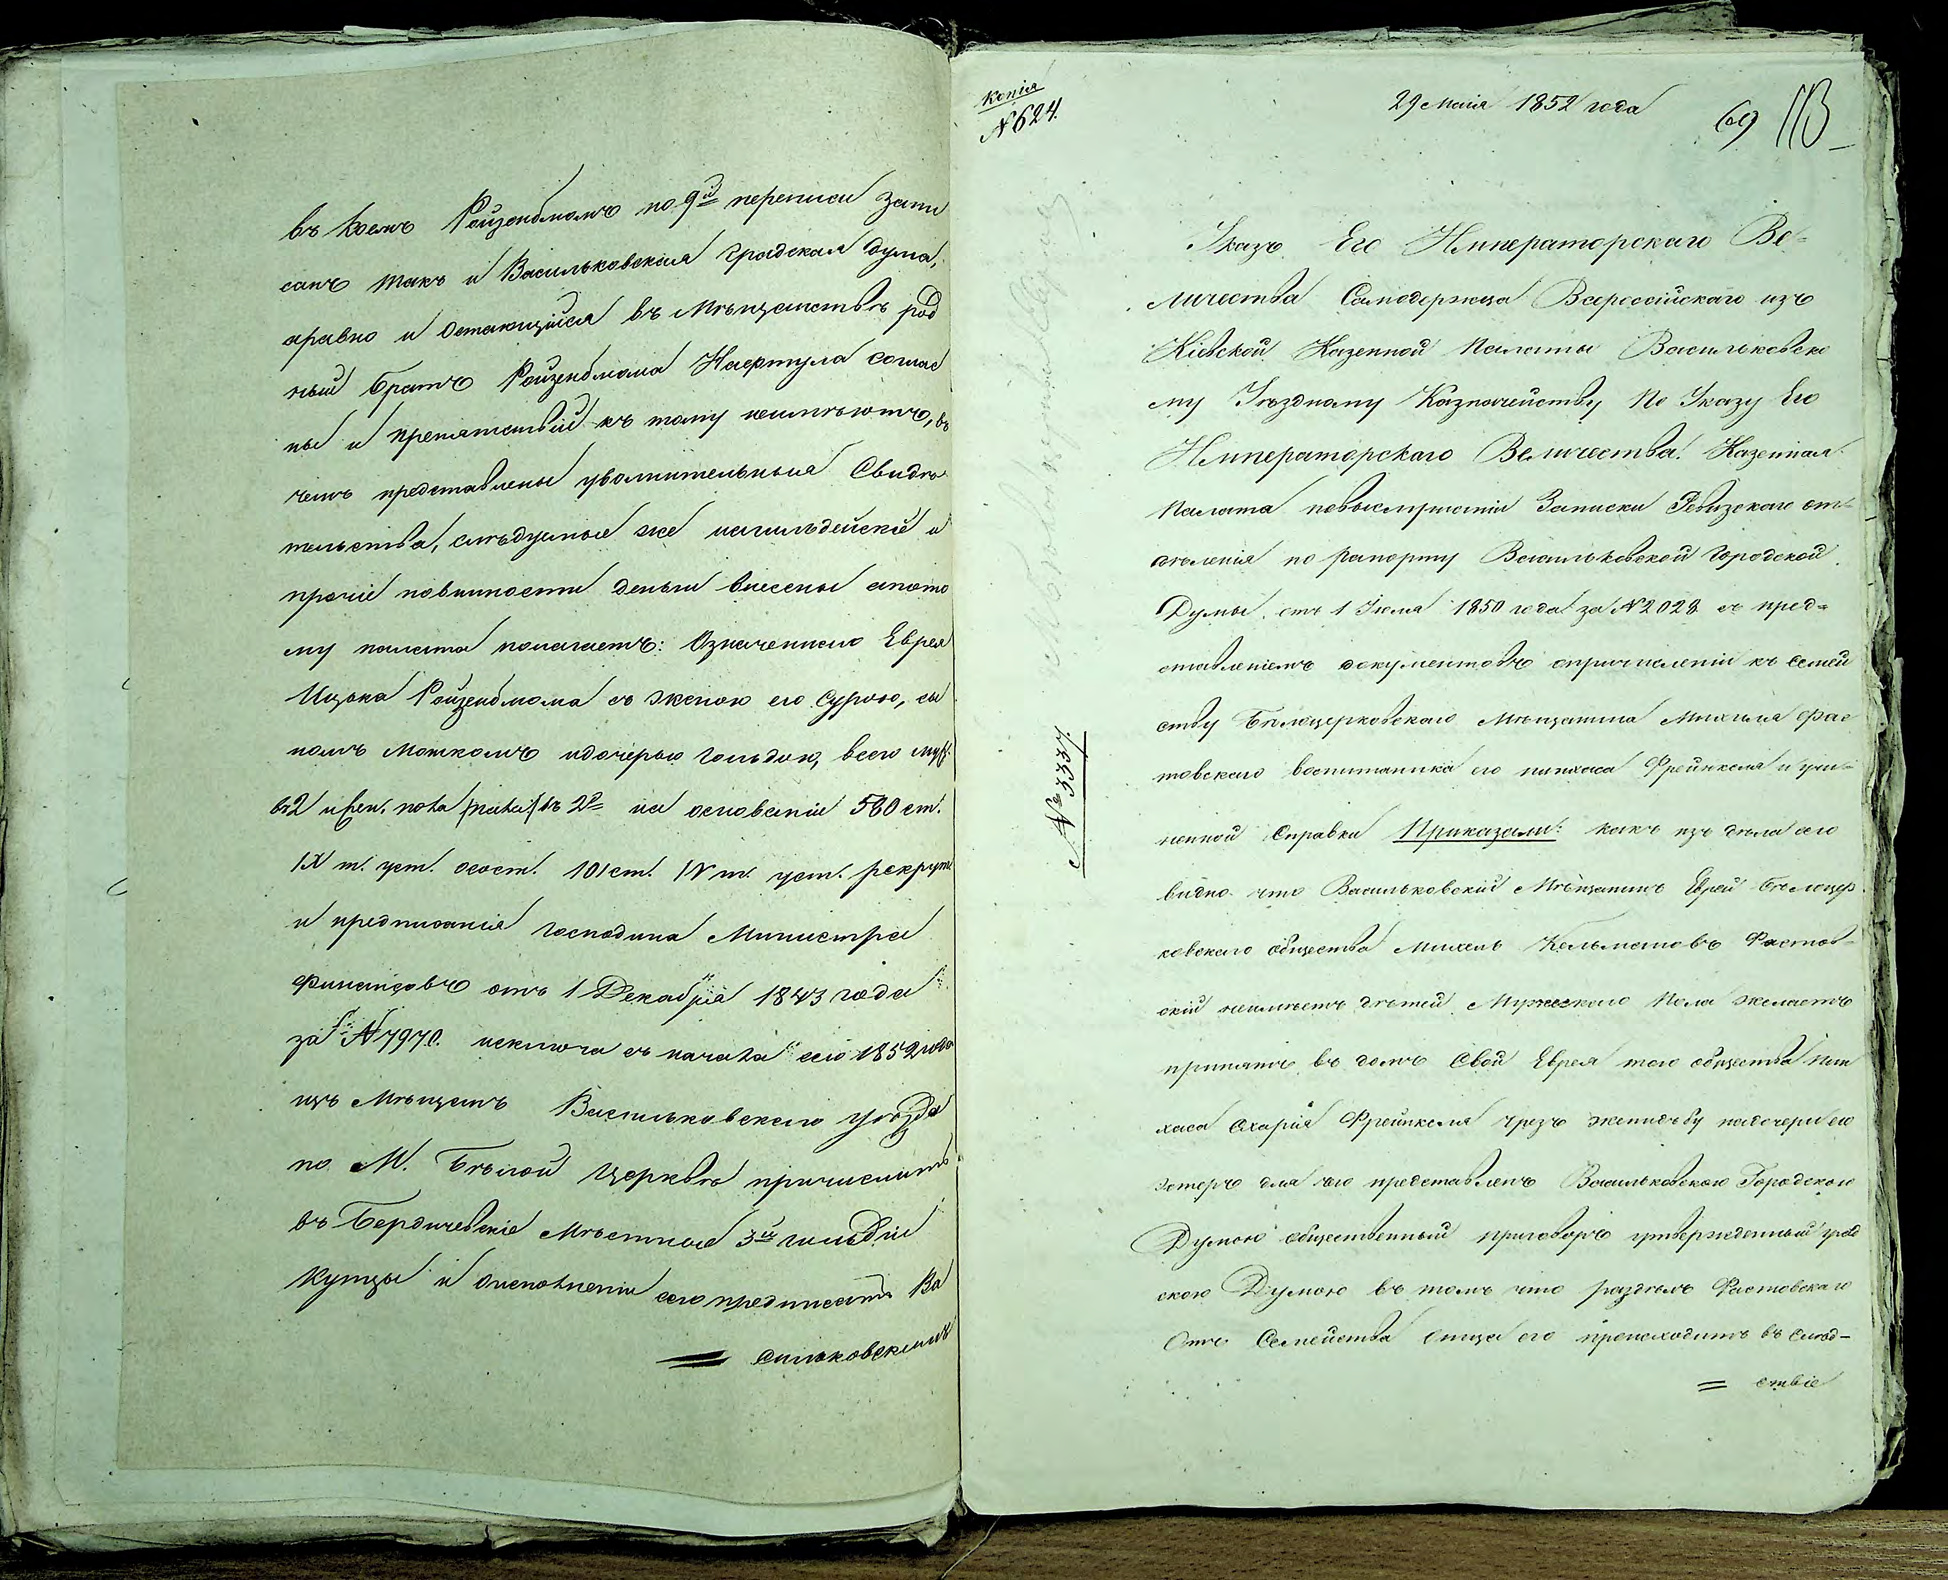 въ коемъ Ройзенблюмъ по 9й переписи запи
санъ такъ и Васильковская градская дума,
а равно и остающийся въ Мѣщанствѣ род
ный братъ Ройзенблюма соглас
ны и препятствий къ тому неимѣютъ, въ
чемъ представлены увольнительныя Свидѣ
тельства, слѣдуемые же нагильдейскіе и
прочіе повинности деньги внесены апото
му палата полагаетъ: Означеннаго Еврея
Ицька Ройзенблюма съ женою его Сурою, сы
номъ Мошкомъ идочерью Гольдою, всего муж.
62 и въ 2й на основаніи 580 ст.
IX т. уст. осост. 101 ст. IV т. уст. рекрут
и предписанія Господина Министра
Финансовъ отъ 1 Декабря 1843 года
за № 7970. исключа съ начала сего 1852 года
изъ Мѣщанъ Васильковскаго уѣзда
по М. Бѣлой Церквѣ причислить
въ Бердичевскіе Мѣстные 3й гильдіи
Купцы и оисполненіи сего предписать Ва
= сильковскимъ
Копія
№ 624.
29 Маія 1852 года
69 113
Указъ Его Императорскаго Ве=
личества Самодержца Всероссійскаго изъ
Кіевской Казенной Палаты Васильковско
му Уѣздному Казначейству По Указу Его
Императорскаго Величества. Казенная
Палата повыслушаніи Записки Ревизскаго от=
дѣленія по рапорту Васильковской Городской
Думы отъ 1 Іюля 1850 года за № 2028 съ пред=
ставленіемъ документовъ опричисленіи къ семей
ству Бѣлоцерковскаго Мѣщанина Михеля Фас
товскаго воспитанника его пинхаса Френкеля и учи=
ненной Справки Приказали: какъ изъ дѣла сего
видно что Васильковскій Мѣщанинъ Еврей Бѣлоцер
ковскаго общества Михель Кельмановъ Фастов=
скій неимѣетъ дѣтей Мужескаго Пола желаетъ
принять въ домъ Свой Еврея того общества Пин
хаса Френкеля чрезъ женидьбу надочери его
Эстеръ для чего представленъ Васильковскою Городскою
Думою общественный приговоръ утвержденный град
скою Думою въ томъ что раздѣлъ Фастовскаго
Отъ Семейства отца его происходитъ въ Слѣд=
= ствіе
№ 3331.